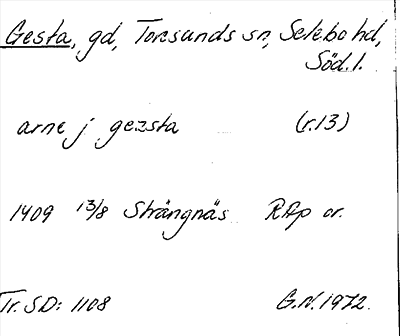 Gesta, gd, Toresunds sn, Selebo hd,
Söd. l.
arne j gezsta (r. 13)
1409 13/8 Strängnäs RAp or.
Tr. SD: 1108 G.N. 1972.